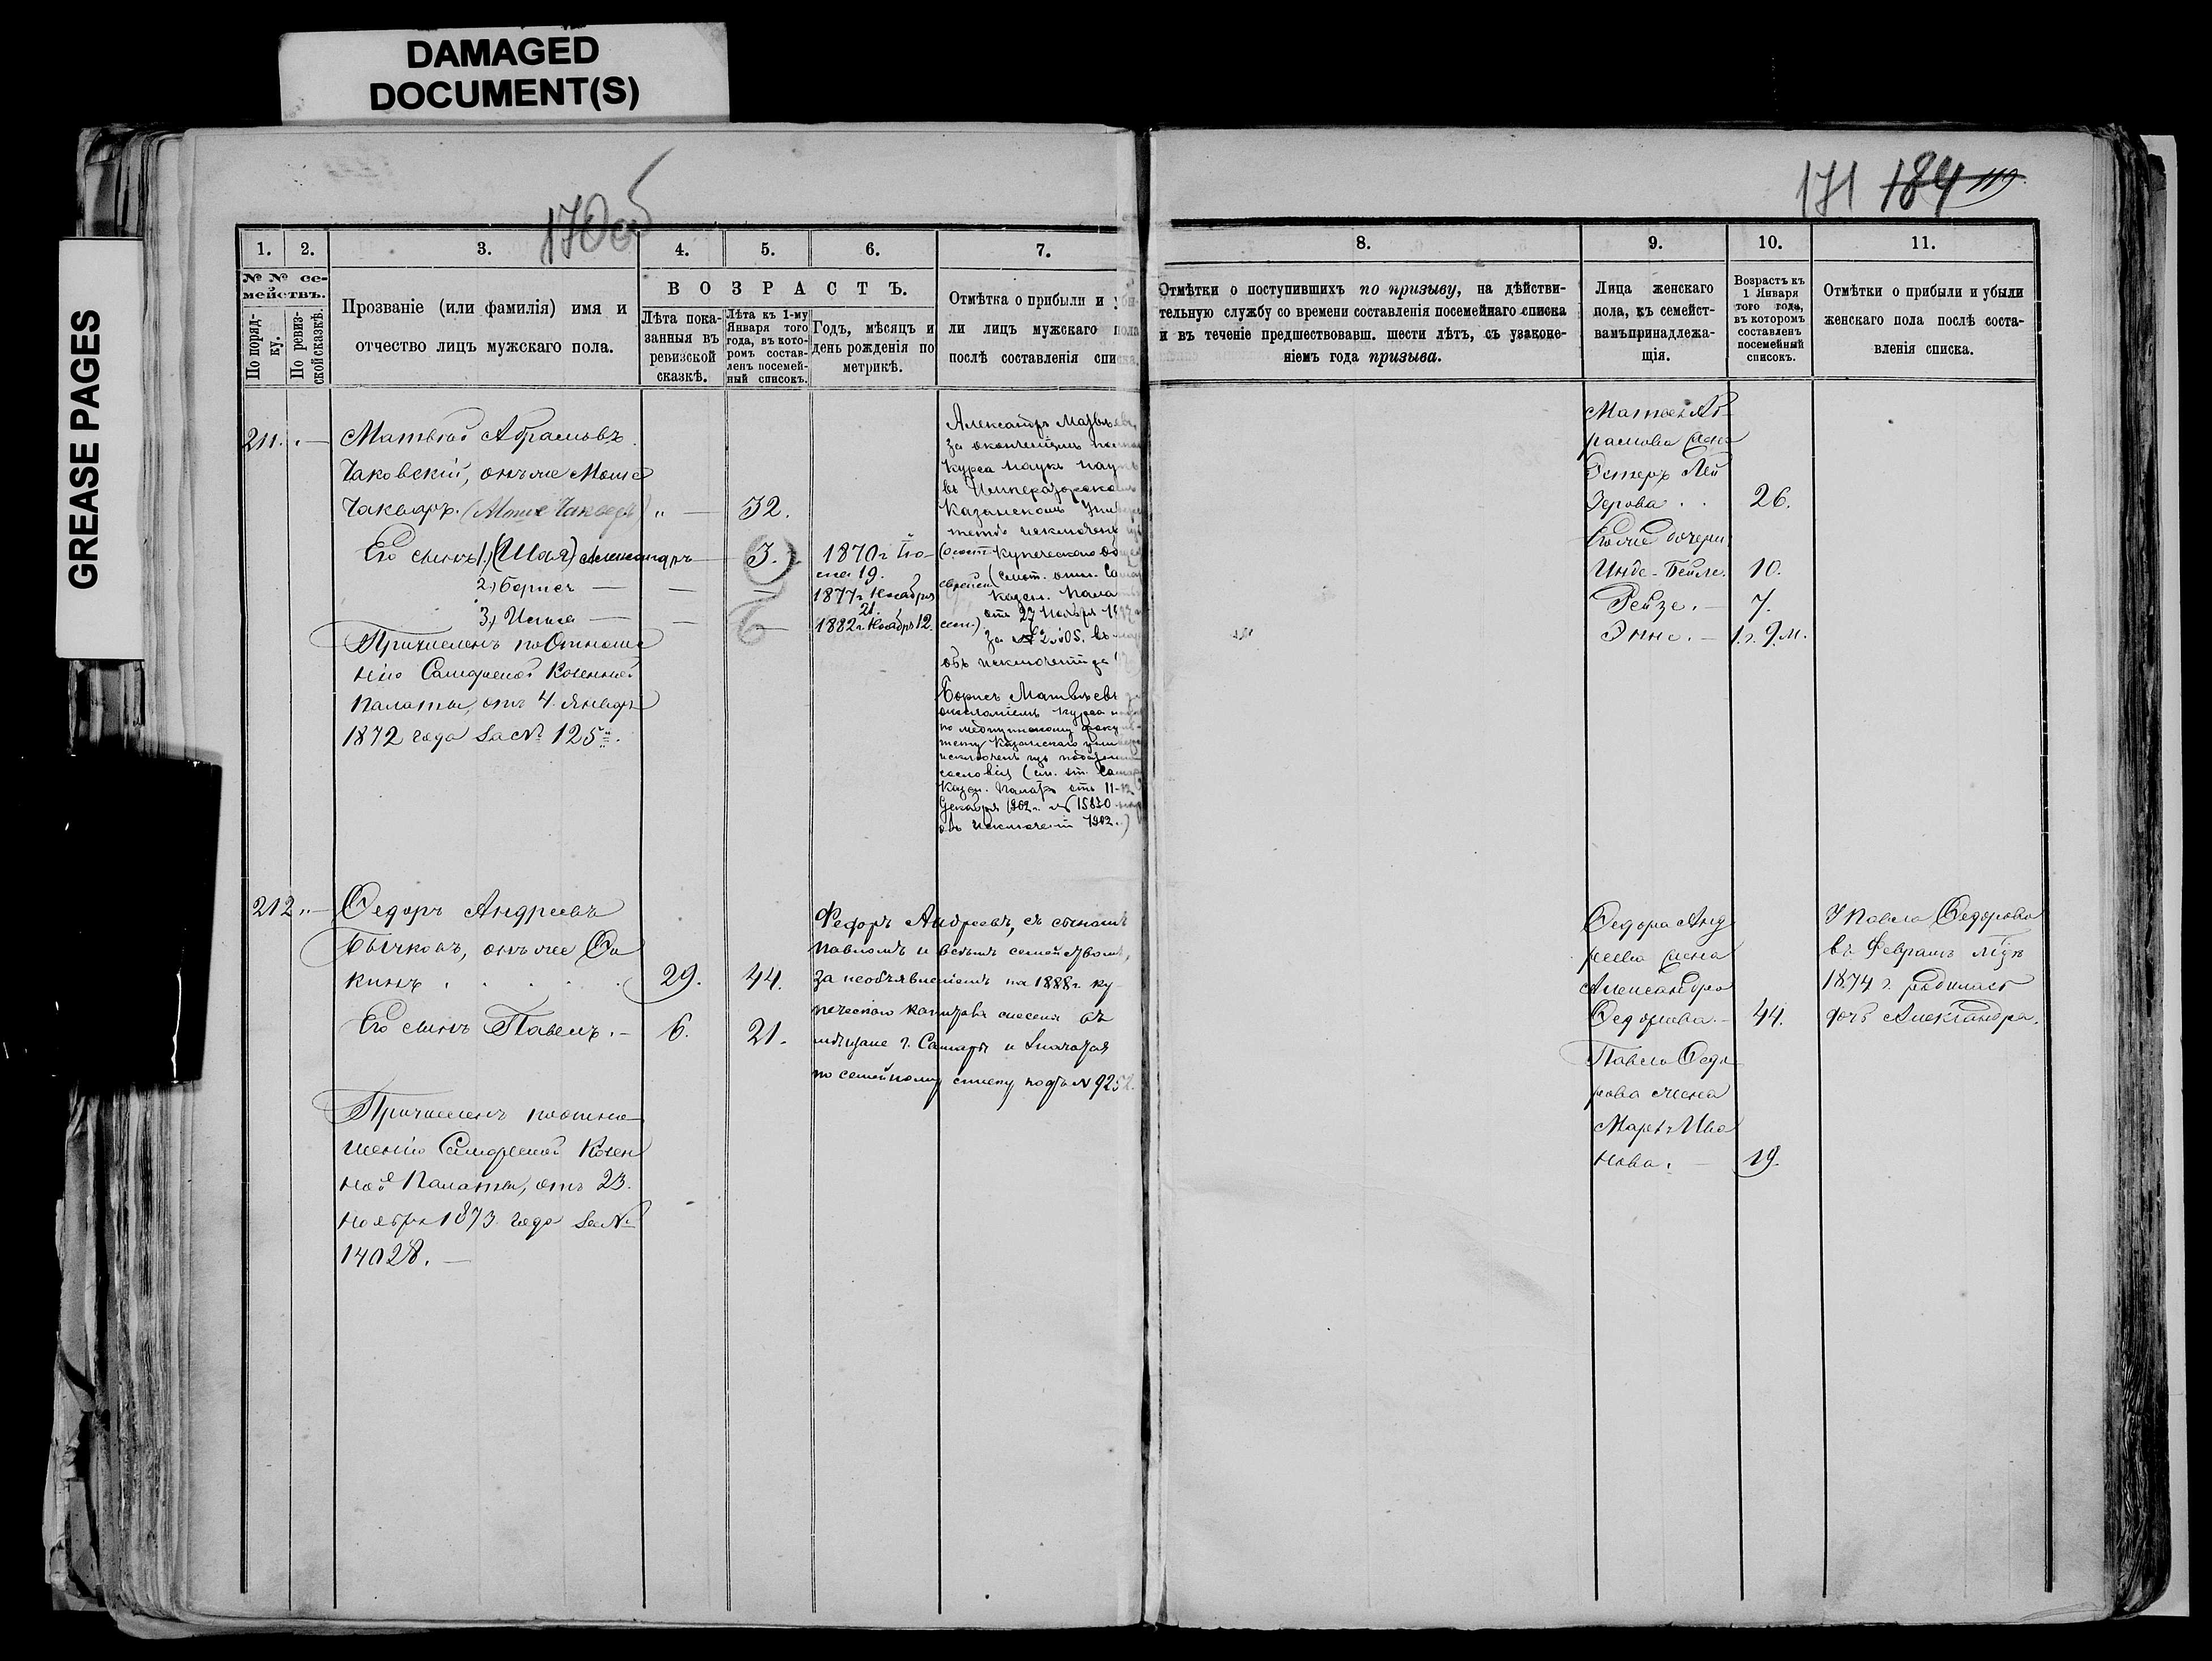 DAMAGED
DOCUMENT(S)
GREASE PAGES
170 об
171 184 119
1. 2. 3. 4. 5. 6. 7.
№ № семействъ.
По порядку.
По ревизской сказкѣ.
Прозваніе (или фамилія) имя и
отчество лицъ мужскаго пола.
ВОЗРАСТЪ.
Лѣта показанныя въ
ревизской
сказкѣ.
Лѣта къ 1-му
Января того
года, въ кото-
ромъ состав-
ленъ посемей-
ный списокъ.
Годъ, мѣсяцъ и
день рожденія по
метрикѣ.
Отмѣтка о прибыли и убы-
ли лицъ мужскаго пола
послѣ составленія списка.
211. Матвѣй Абрамовъ
Чаковскій, онъ же Моше
(Моше
" — 32.
Его сынъ 1) (Шая) Александръ — 3. 1870 г. Iю-
ня 19.
2) Борисъ — — — 1877 г. Ноября
21.
3) Илья — — — 1882 г. Ноября 12.
Причисленъ по отноше
нію Самарской Казенной
Палаты, отъ 4. Января
1872 года за № 125.
Александръ Матвѣевъ,
за окончаніемъ
курса наукъ
въ Императорском
Казанскомъ
исключенъ
купеческаго
Казен. Пала
отъ 27 Ноября
за №
объ исключеніи за
Борисъ Матвѣевъ
окончаніемъ курса
по медицинскому факуль-
тету Казанскаго
исключенъ изъ
сословія (
Казен. Палаты отъ 11-12
Декабря 1902 г. № 15830
объ исключеніи 1902.)
212. — Ѳедоръ Андреевъ
Бычковъ, онъ же Ѳо
кинъ . . . . . 29. 44.
Его сынъ Павелъ. — 6. 21.
Причисленъ по отно
шенію Самарской Казен
ной Палаты, отъ 23.
Ноября 1873 года за №
14028. —
Федоръ Андреевъ, съ сыномъ
Павломъ и всѣмъ семействомъ,
за необъявленіемъ на 1888 г. ку-
печескаго капитала въ
мѣщане г. Самары и значатся
по семейному списку подъ № 9252.
8. 9. 10. 11.
Отмѣтки о поступившихъ по призыву, на дѣйстви-
тельную службу со времени составленія посемейнаго списка
и въ теченіе предшествовавш. шести лѣтъ, съ узаконе-
ніемъ года призыва.
Лица женскаго
пола, къ семейст-
вамъ принадлежа-
щія.
Возрастъ къ
1 Января
того года,
въ которомъ
составленъ
посемейный
списокъ.
Отмѣтки о прибыли и убыли
женскаго пола послѣ соста-
вленія списка.
Матвѣя Аб-
рамова жена
Эстеръ Лей
зерова . . 26.
Его же дочери,
Инде-Бейле. 10.
Рейзе. — 7.
Энне. — 1 г. 9 м.
Ѳедора Анд
реева жена
Александра
Ѳедорова. — 44.
Павла Ѳедо
рова жена
Марья Ива
нова. — 19.
У Павла Ѳедорова
въ Февралѣ м-цѣ
1874 г. родилась
дочь Александра.